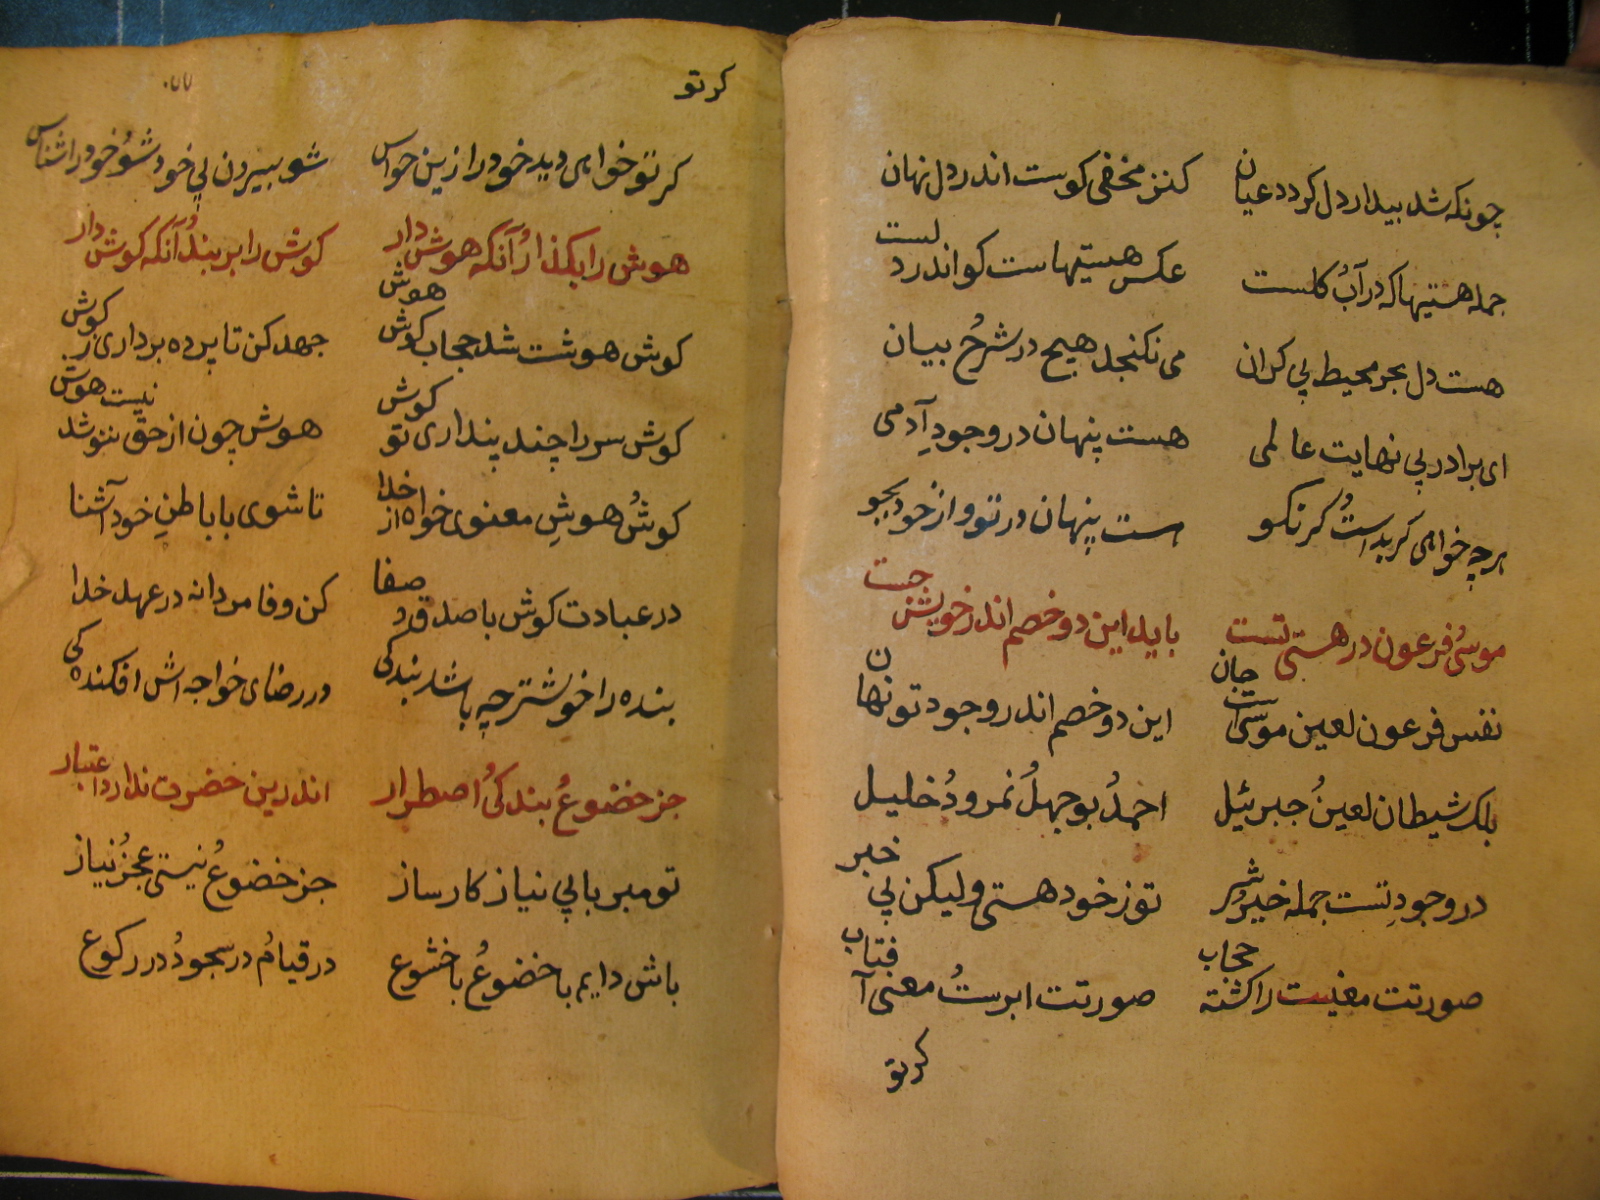 چونکه شد بیدار دل کردد عیان کنز مخفی کوست اندر دل نهان
جمله هستیها که در آب کلست عکس هستیهاست کو اندر دلست
هست دل بحر محیط بی کران می نکنجد هیچ در شرح بیان
ای برادر بی نهایت عالمی هست پنهان در وجودِ آدمی
هرچه خواهی کر بد است کر نکو است پنهان در تو و از خود بجو
موسیُ فرعون در هستی تست باید این دو خصم اندر خویش جست
نفس فرعون لعین موسی است جان این دو خصم اندر وجود تو نهان
بلک شیطان لعینُ جبرئیل احمدُ بوجهلُ نمرودُ خلیل
در وجودِ تست جمله خیرُ شر تو ز خود هستی ولیکن بی خبر
صورتت معنیست را کشته حجاب صورتت ابرستُ معنی آفتاب
کر تو
کر تو
کر تو خواهی دید خود را زین حواس شو بیرون بی خود شوُ خود را شناس
هوش را بکذارُ آنکه هوش دار کوش را بر بندُ آنکه کوش دار
کوش هوشت شد حجاب کوش هوش جهد کن تا پرده برداری ز کوش
کوش سر را چند پنداری تو کوش هوش چون از حق ننوشد نیست هوش
کوشُ هوشِ معنوی خواه از خدا تا شوی با باطنِ خود آشنا
در عبادت کوش با صدق و صفا کن وفا مردانه در عهد خدا
بنده را خوشتر چه باشد بندکی در رضای خواجه اش افکندهکی
جز خضوعُ بندکیُ اضطرار اندرین حضرت ندارد اعتبار
تو مبر با بی نیاز کارساز جز خضوعُ نیستی عجزُ نیاز
باش دایم با خضوعُ با خشوع در قیامُ در سجودُ در رکوع